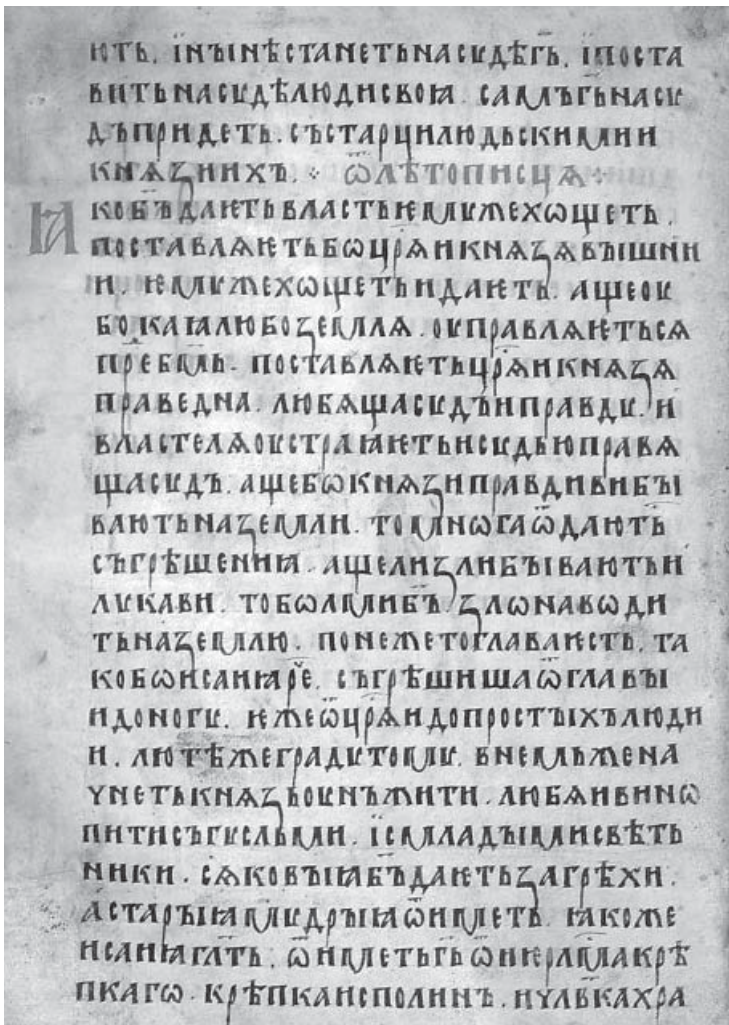 ють. їнꙑнѣстанетьнасꙋдъг҃ь. їпоста
витьнасꙋдълюдисвоꙗ. самъг҃ьнасꙋ
дъпридеть. състарцилюдьскимии
кнѧзиихъ. ѿлѣтописцѧ
ꙗкоб҃ъдаѥтьвластьѥмꙋжехѡщеть.
поставлѧѥтьбѡцр҃ѧикнѧзѧвꙑшнии
и. ѥмꙋжехѡщетьидаѥть. ащеоу
бокаꙗлюбоземлѧ. оуправлѧѥтьсѧ
прⷣеб҃мь. поставлѧѥтьцр҃ѧикнѧзѧ
праведна. любѧщасꙋдъиправдꙋ. и
властелѧоустраꙗѥтьисꙋдьюправѧ
щасꙋдъ. ащебѡкнѧзиправдивибꙑ
ваютьназемли. томнѡгаѿдають
съгрѣшениꙗ. ащелизлибꙑваютьи
лꙋкави. тобѡлшиб҃ъ. злѡнавѡди
тьназемлю. понежетоглаваѥсть. та
кобѡисаиꙗреⷱ. съгрѣшишаѿглавꙑ
идоногꙋ. ѥжеѿцр҃ѧидопростꙑхълюди
и. лютѣжеградꙋтомꙋ. внемьжена
чнетькнѧзьоунъжити. любѧивинѡ
питисъгꙋсльми. їсмладꙑмисвѣть
ники. сѧковꙑꙗб҃ъдаѥтьзагрѣхи.
астарꙑꙗмꙋдрꙑꙗѿиметь. ꙗкоже
исаиꙗгл҃ть. ѿиметьг҃ьѿиѥрл҃макрѣ
пкагѡ. крѣпкаисполинъ. ичл҃вкахра